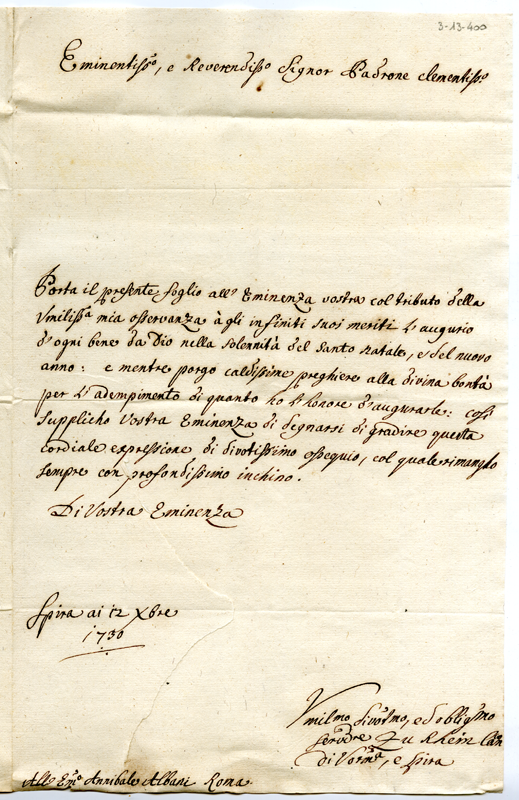 3-13-400
Eminentissº, e Reverendissº Signor Padrone clementissº
Porta il presente foglio all' Eminenza vostra col tributo della
Vmilissª mia osservanza à gli infiniti suoi meriti l'augurio
d'ogni bene da Dio nella solennità del santo natale, e del nuovo
anno: e mentre porgo caldissime preghiere alla divina bontà
per l'adempimento di quanto ho l'honore d'augurarle: cosi
supplicho Vostra Eminenza di degnarsi di gradire questa
cordiale expressione di divotissimo ossequio, col quale rimango
sempre con profondissimo inchino.
Di Vostra Eminenza
Spira ai 12 Xbre
1730
Vmilmo divotmo, ed obligmo
servdre Zu Rhein Can
di Vormª, e spira
All' Emº Annibale Albani Roma.